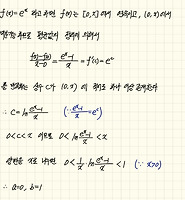 f(x)=e^x 라고 하면 f(x)는 [0,x]에서 연속이고, (0,x)에서
미분가능하므로 평균값의 정리에 의하여
\frac{f(x)-f(0)}{x-0} = \frac{e^x-1}{x} = f'(c)=e^c
를 만족하는 c가 (0,x)에 적어도 하나 존재한다
∴ c = ln\frac{e^x-1}{x} (∵ \frac{e^x-1}{x}=e^c)
0<c<x 이므로 0< ln\frac{e^x-1}{x} <x
각변을 x로 나누면 0< \frac{1}{x}·ln\frac{e^x-1}{x} <1 (∵ x>0)
∴ a=0, b=1